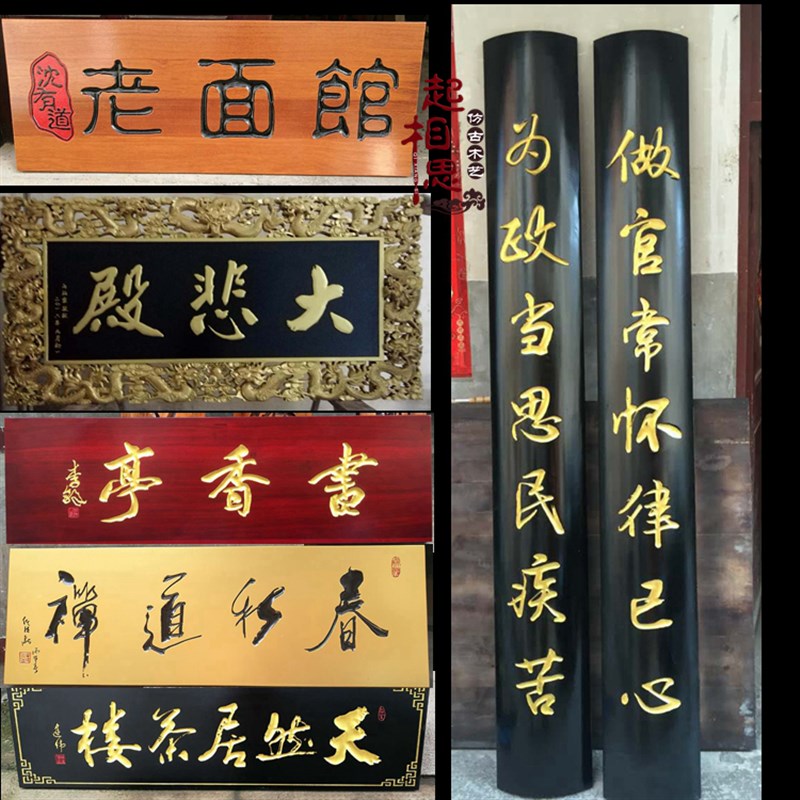 沈有道
老面館
起相思
仿古木艺
大悲殿
書香亭
春秋道禪
天然居茶楼
做官常怀律己心
为政当思民疾苦